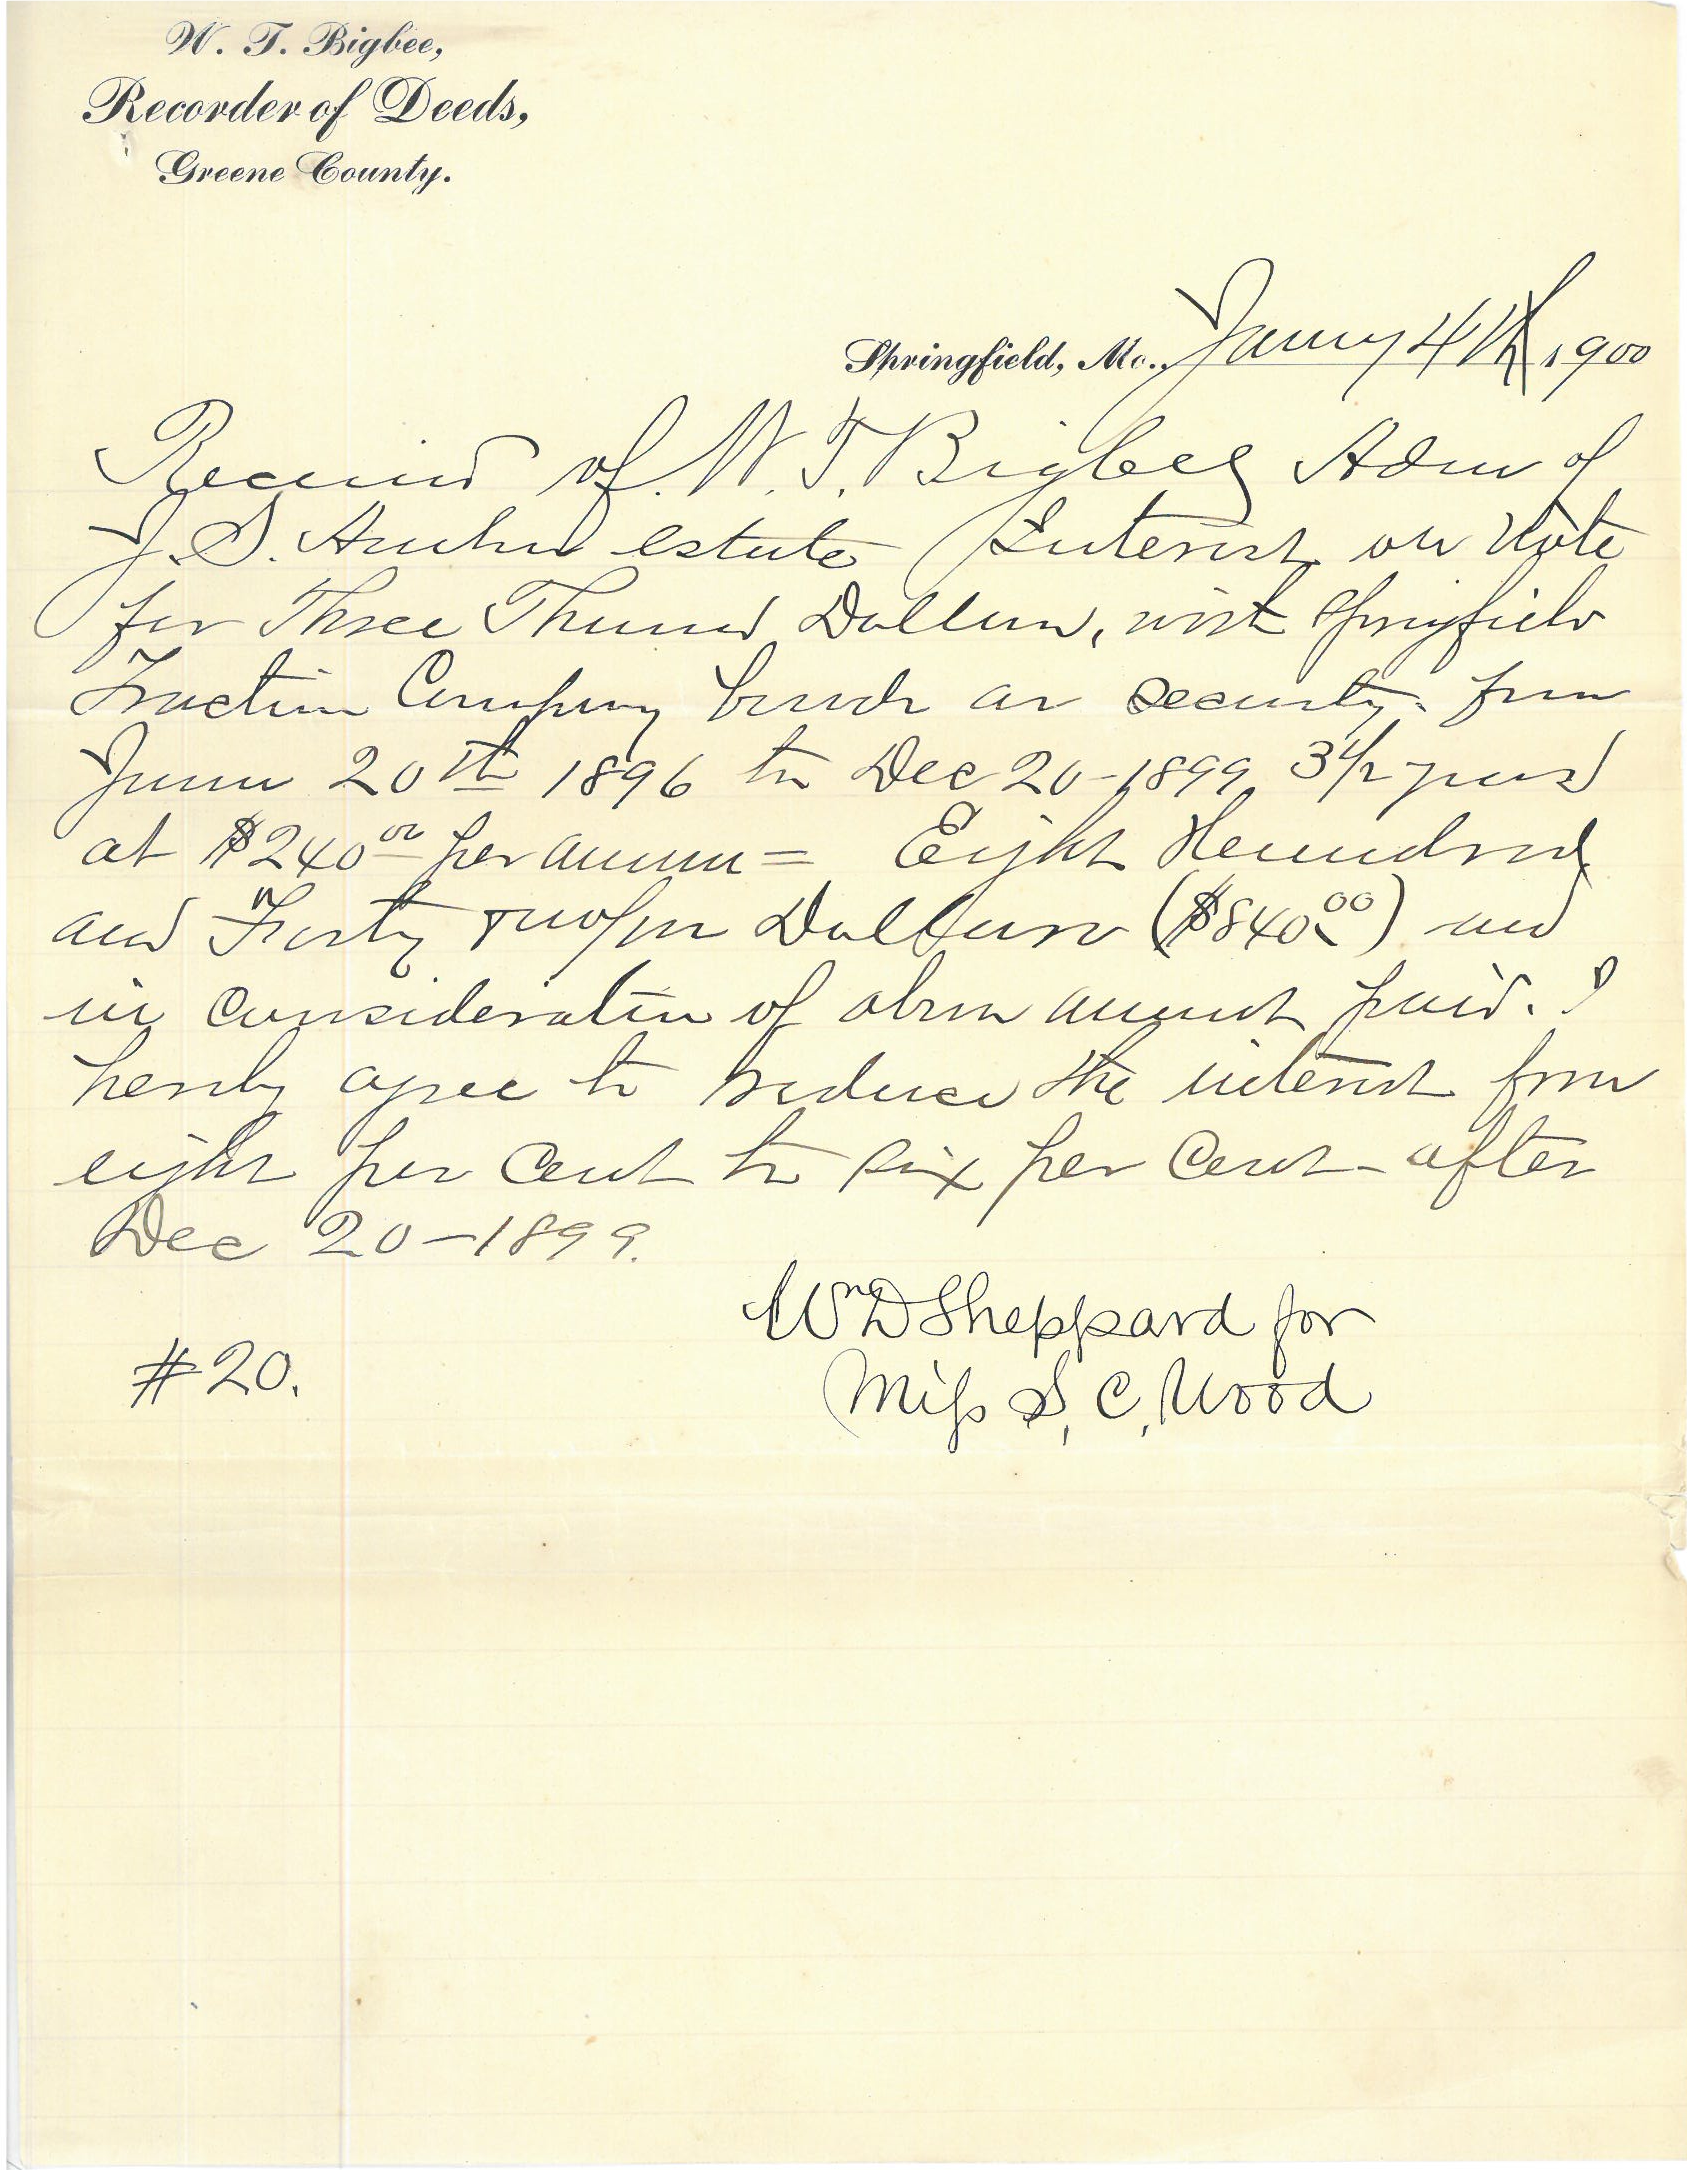 W. T. Bigbee,
Recorder of Deeds,
Greene County.
Springfield, Mo., Jany 4th 1900
Received of W. T. Bigbee Adm of
J. S. estate Interest on Note
for Three Thousand Dollars, with Springfield
Traction Company bonds as security. from
June 20th 1896 to Dec 20-1899 3 1/2 years
at $240.00 per annum = Eight Hundred
and Forty no/100 Dollars ($840.00) and
in consideration of above amount paid. I
hereby agree to reduce the interest from
eight per cent to six per cent after
Dec 20-1899.
Wm D Sheppard for
Miss S. C. Wood
#20.